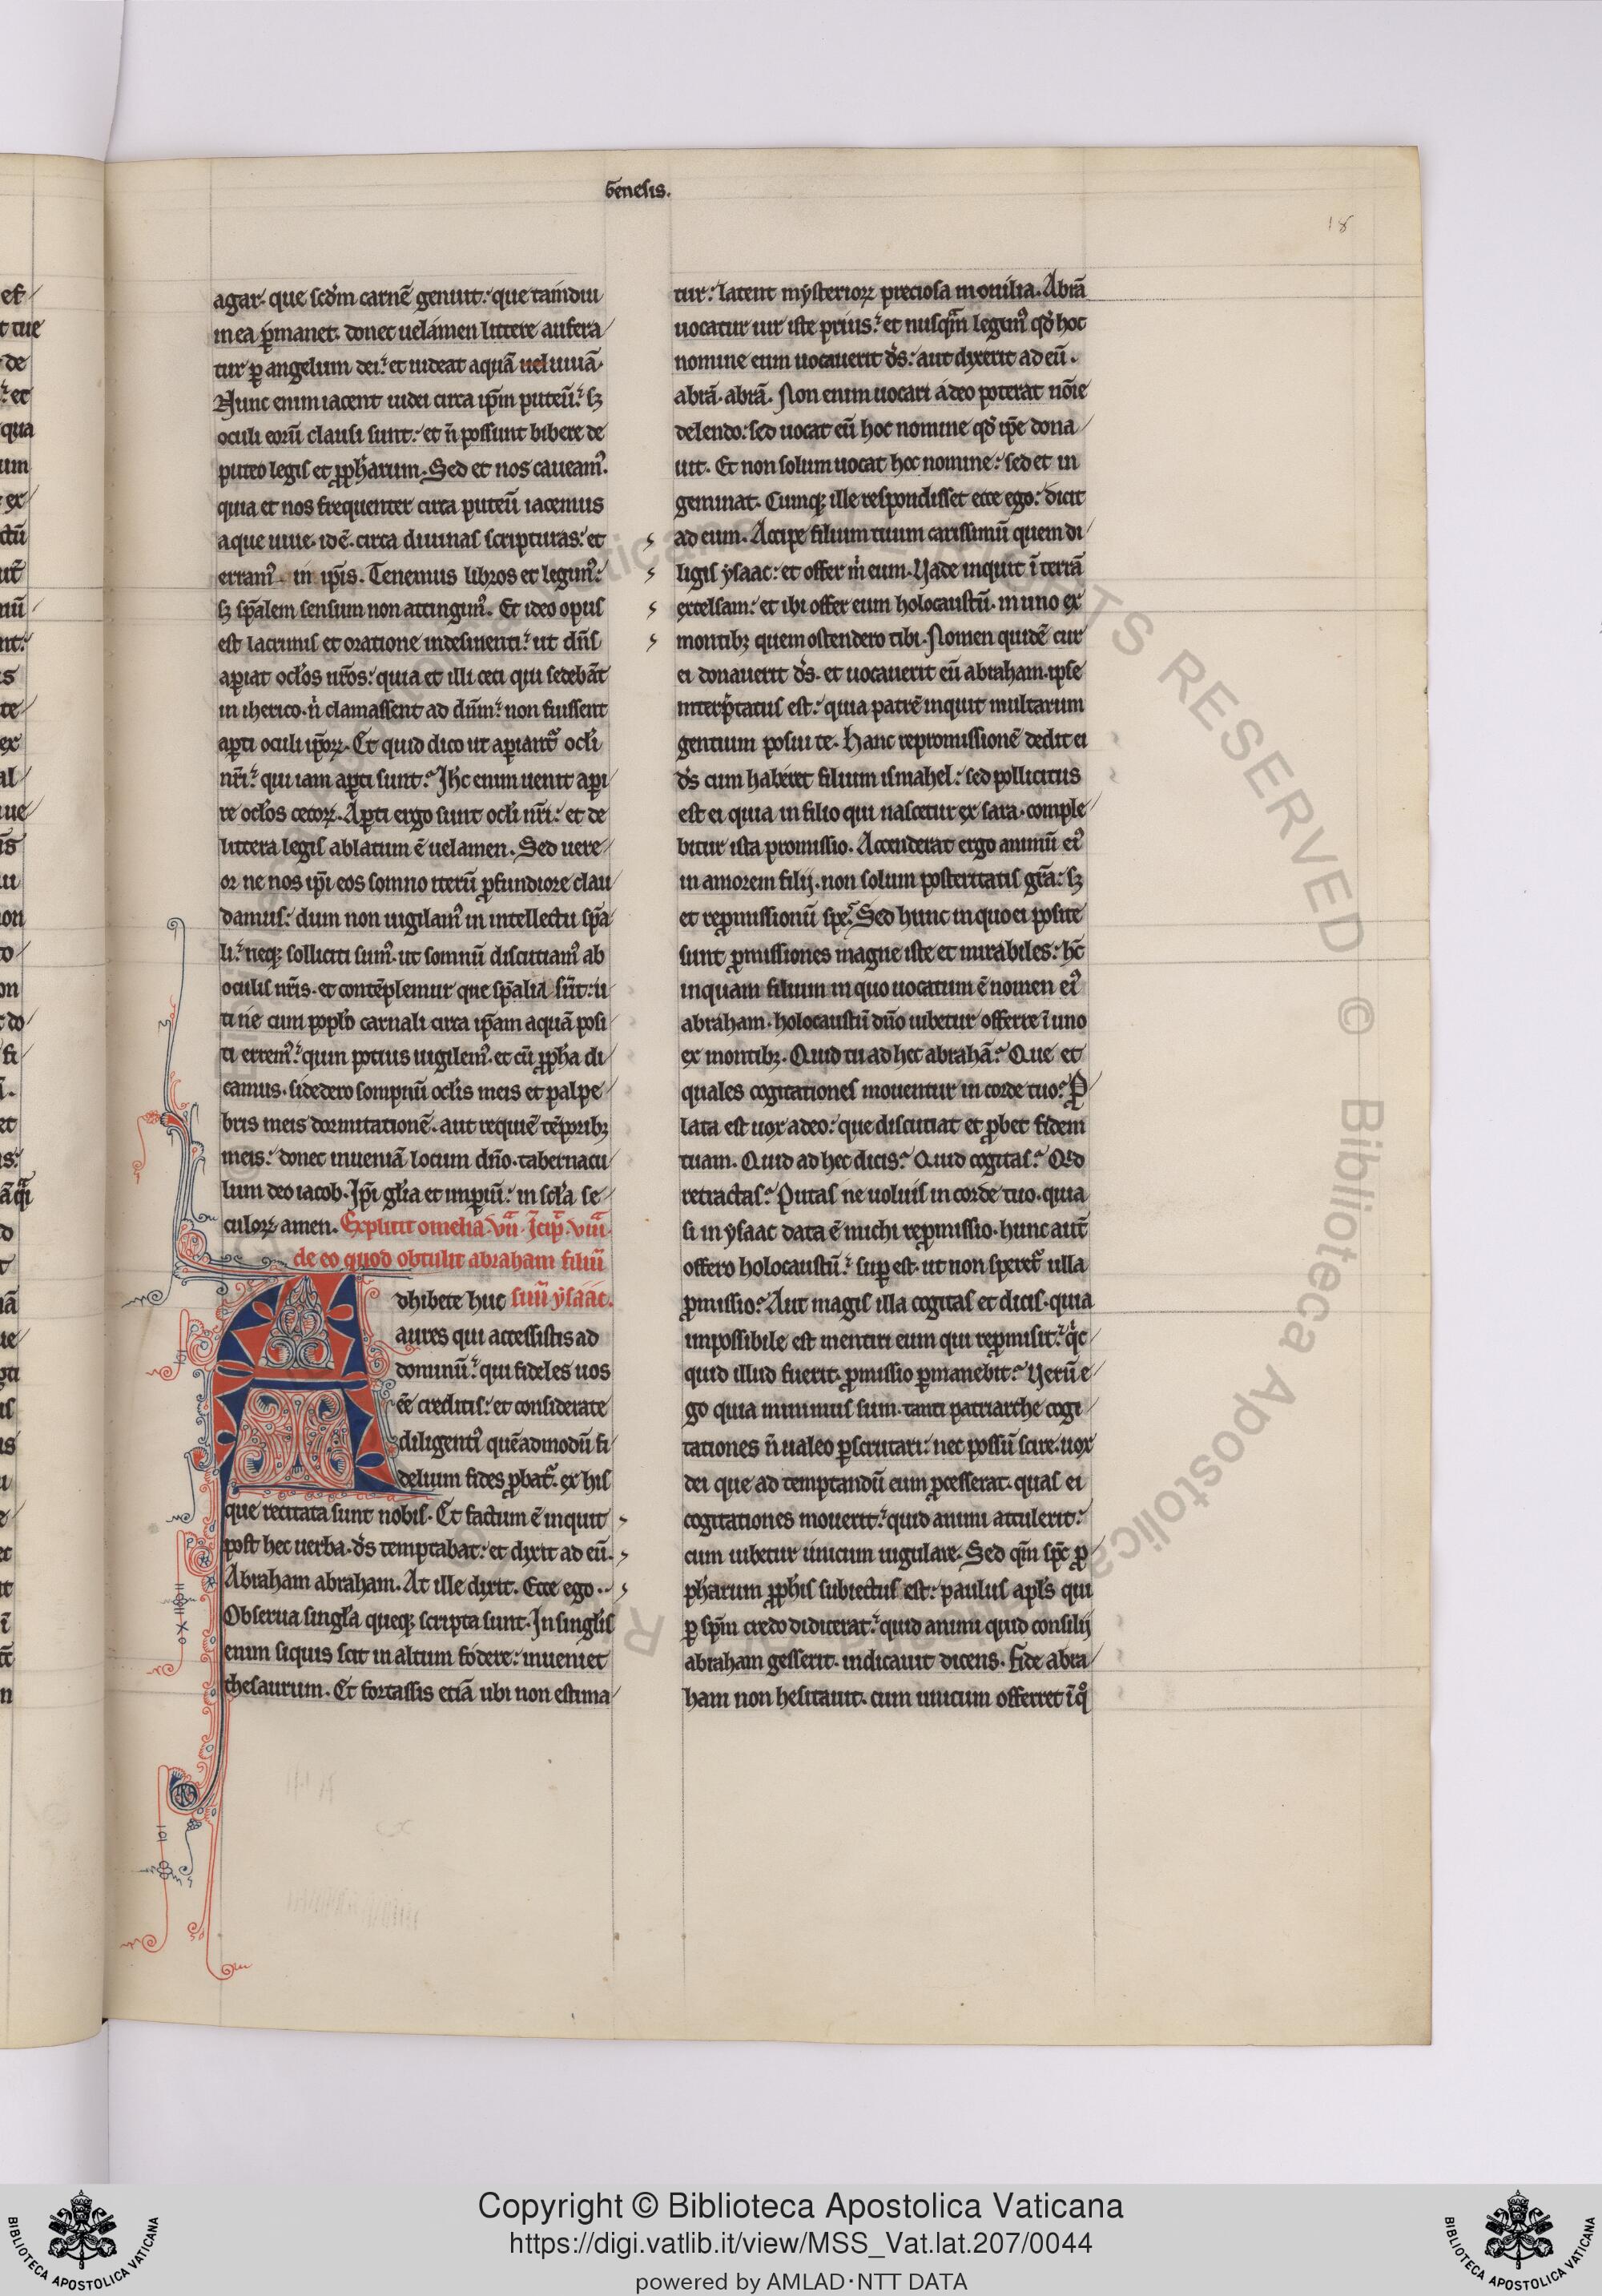 Genesis.
18
agar. que scd'm carnē genuit: que tamdiu
in ea p̄manet. donec uelamen littere aufera
tur p̄ angelum dei: et uideat aquā uel uiuā.
Nunc enim iacent iudei circa ip̄m puteū: sꝫ
oculi eorū clausi sunt: et n̄ possunt bibere de
puteo legis et ꝓph'arum. Sed et nos caueamꝰ.
quia et nos frequenter circa puteū iacemus
aque uiue. idē. circa diuinas scripturas: et
erramꝰ in ip̄is. Tenemus libros et legimꝰ:
sꝫ sp̄alem sensum non attingimꝰ. Et ideo opus
est lacrimis et oratione indesinenti: ut dn̄s
aꝑiat ocl'os nr̄os: quia et illi ceci qui sedebāt
in iherico. n̓ clamassent ad dn̄m: non fuissent
aꝑti oculi ip̄oꝝ. Et quid dico ut aꝑiant᷑ ocl'i
nr̄i: qui iam aꝑti sunt. Ih'c enim uenit aꝑi
re ocl'os cecoꝝ. Aꝑti ergo sunt ocl'i nr̄i: et de
littera legis ablatum ē uelamen. Sed uere
or ne nos ip̄i eos somno iterū ꝓfundiore clau
damus: dum non uigilamꝰ in intellectu sp̄a
li: neqꝫ solliciti sumꝰ. ut somnū discutiamꝰ ab
oculis nr̄is. et contēplemur que sp̄alia sūt: u
ti ne cum popl'o carnali circa ip̄am aquā posi
ti erremꝰ: quin potius uigilemꝰ. et cū ꝓph'a di
camus. si dedero sompnū ocl'is meis et palpe
bris meis dormitationē. aut requiē tēporibꝫ
meis: donec inueniā locum dn̄o. tabernacu
lum deo iacob. Ip̄i gl'ia et imꝑiū: in scl'a se
culoꝝ amen. Explicit omelia .vii.ᵃ Icip̄ .viii.ᵃ
de eo quod obtulit abraham filiū
Adhibete huc suū ysaac.
aures qui accessistis ad
dominū: qui fideles uos
ēē creditis: et considerate
diligentꝰ quēadmodū fi
delium fides ꝓbat᷑. ex his
que recitata sunt nobis. Et factum ē inquit
post hec uerba. d's temptabat: et dixit ad eū.
Abraham abraham. At ille dixit. Ecce ego.
Obserua singl'a queqꝫ scripta sunt. In singl'is
enim siquis scit in altum fodere: inueniet
thesaurum. Et fortassis etiā ubi non estima
tur: latent mysterioꝝ preciosa monilia. Abrā
uocatur uir iste prius: et nusqᵃm legimꝰ qd' hoc
nomine eum uocauerit d's: aut dixerit ad eū.
abrā. abrā. Non enim uocari a deo poterat nōie
delendo: sed uocat eū hoc nomine qd' ip̄e dona
uit. Et non solum uocat hoc nomine: sed et in
geminat. Cumqꝫ ille respondisset ecce ego: dicit
ad eum. Accipe filium tuum carissimū quem di
ligis ysaac: et offer m̓ eum. Vade inquit ī terrā
excelsam: et ibi offer eum holocaustū. in uno ex
montibꝫ quem ostendero tibi. Nomen quidē cur
ei donauerit d's. et uocauerit eū abraham. ipse
interp̄tatus est: quia patrē inquit multarum
gentium posui te. Hanc repromissionē dedit ei
d's cum haberet filium ismahel: sed pollicitus
est ei quia in filio qui nascetur ex sara. comple
bitur ista promissio. Accenderat ergo animū eiꝰ
in amorem filij. non solum posteritatis gr̄a: sꝫ
et reꝓmissionū spe. Sed hunc in quo ei posite
sunt ꝓmissiones magne iste et mirabiles: hc̄
inquam filium in quo uocatum ē nomen eiꝰ
abraham. holocaustū dn̄o iubetur offerre ī uno
ex montibꝫ. Quid tu ad hec abrahā? Que et
quales cogitationes mouentur in corde tuo? Ꝓ
lata est uox a deo: que discutiat et ꝓbet fidem
tuam. Quid ad hec dicis? Quid cogitas? Qⁱd
retractas? Putas ne uoluis in corde tuo. quia
si in ysaac data ē michi reꝓmissio. hunc aut̄
offero holocaustū: suꝑ est. ut non speret᷑ ulla
ꝓmissio? Aut magis illa cogitas et dicis. quia
impossibile est mentiri eum qui reꝓmisit: qⁱc
quid illud fuerit. ꝓmissio ꝑmanebit? Verū e
go quia minimus sum. tanti patriarche cogi
tationes n̄ ualeo ꝑscrutari: nec possū scire. uox
dei que ad temptandū eum ꝓcesserat. quas ei
cogitationes mouerit: quid animi attulerit:
cum iubetur unicum iugulare. Sed qm̄ sp̄c ꝓ
ph'arum ꝓph'is subiectus est: paulus apl's qui
ꝑ sp̄m credo didicerat: quid animi quid consilij
abraham gesserit. indicauit dicens. Fide abra
ham non hesitauit. cum unicum offerret ī qͦ
Copyright © Biblioteca Apostolica Vaticana
https://digi.vatlib.it/view/MSS_Vat.lat.207/0044
powered by AMLAD·NTT DATA
BIBLIOTECA APOSTOLICA VATICANA
BIBLIOTECA APOSTOLICA VATICANA